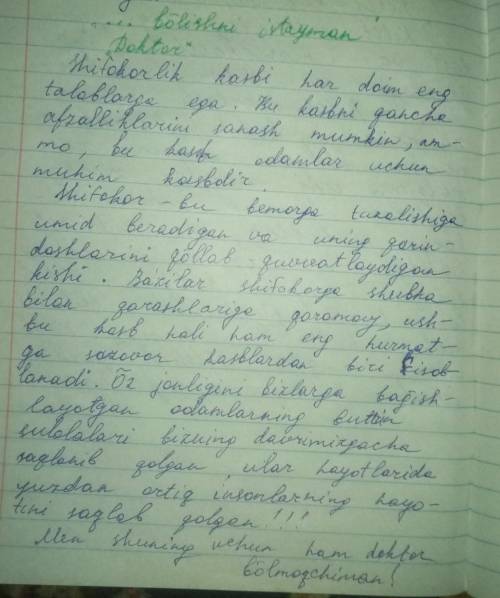 .... bōlishni istayman
"Doktor"
Shifokorlik kasbi har doim eng
talablarga ega. Bu kasbni qancha
afzalliklarini sanash mumkin, am-
mo, bu kasb odamlar uchun
muhim kasbdir.
Shifokor - bu bemorga tuzalishiga
umid beradigan va uning qarin-
doshlarini qōllab quvvatlaydigan
kishi. Ba'zilar shifokorga shubha
bilan qarashlariga qaramay, ush-
bu kasb hali ham eng hurmat-
ga sazovor kasblardan biri hisob
lanadi. Ōz jonligini bizlarga bağish-
layotgan odamlarning butun
sulolalari bizning davrimizgacha
saqlanib qolgan, ular hayotlarida
yuzdan ortiq insonlarning hayo-
tini saqlab qolgan!!!
Men shuning uchun ham doktor
bōlmoqchiman!